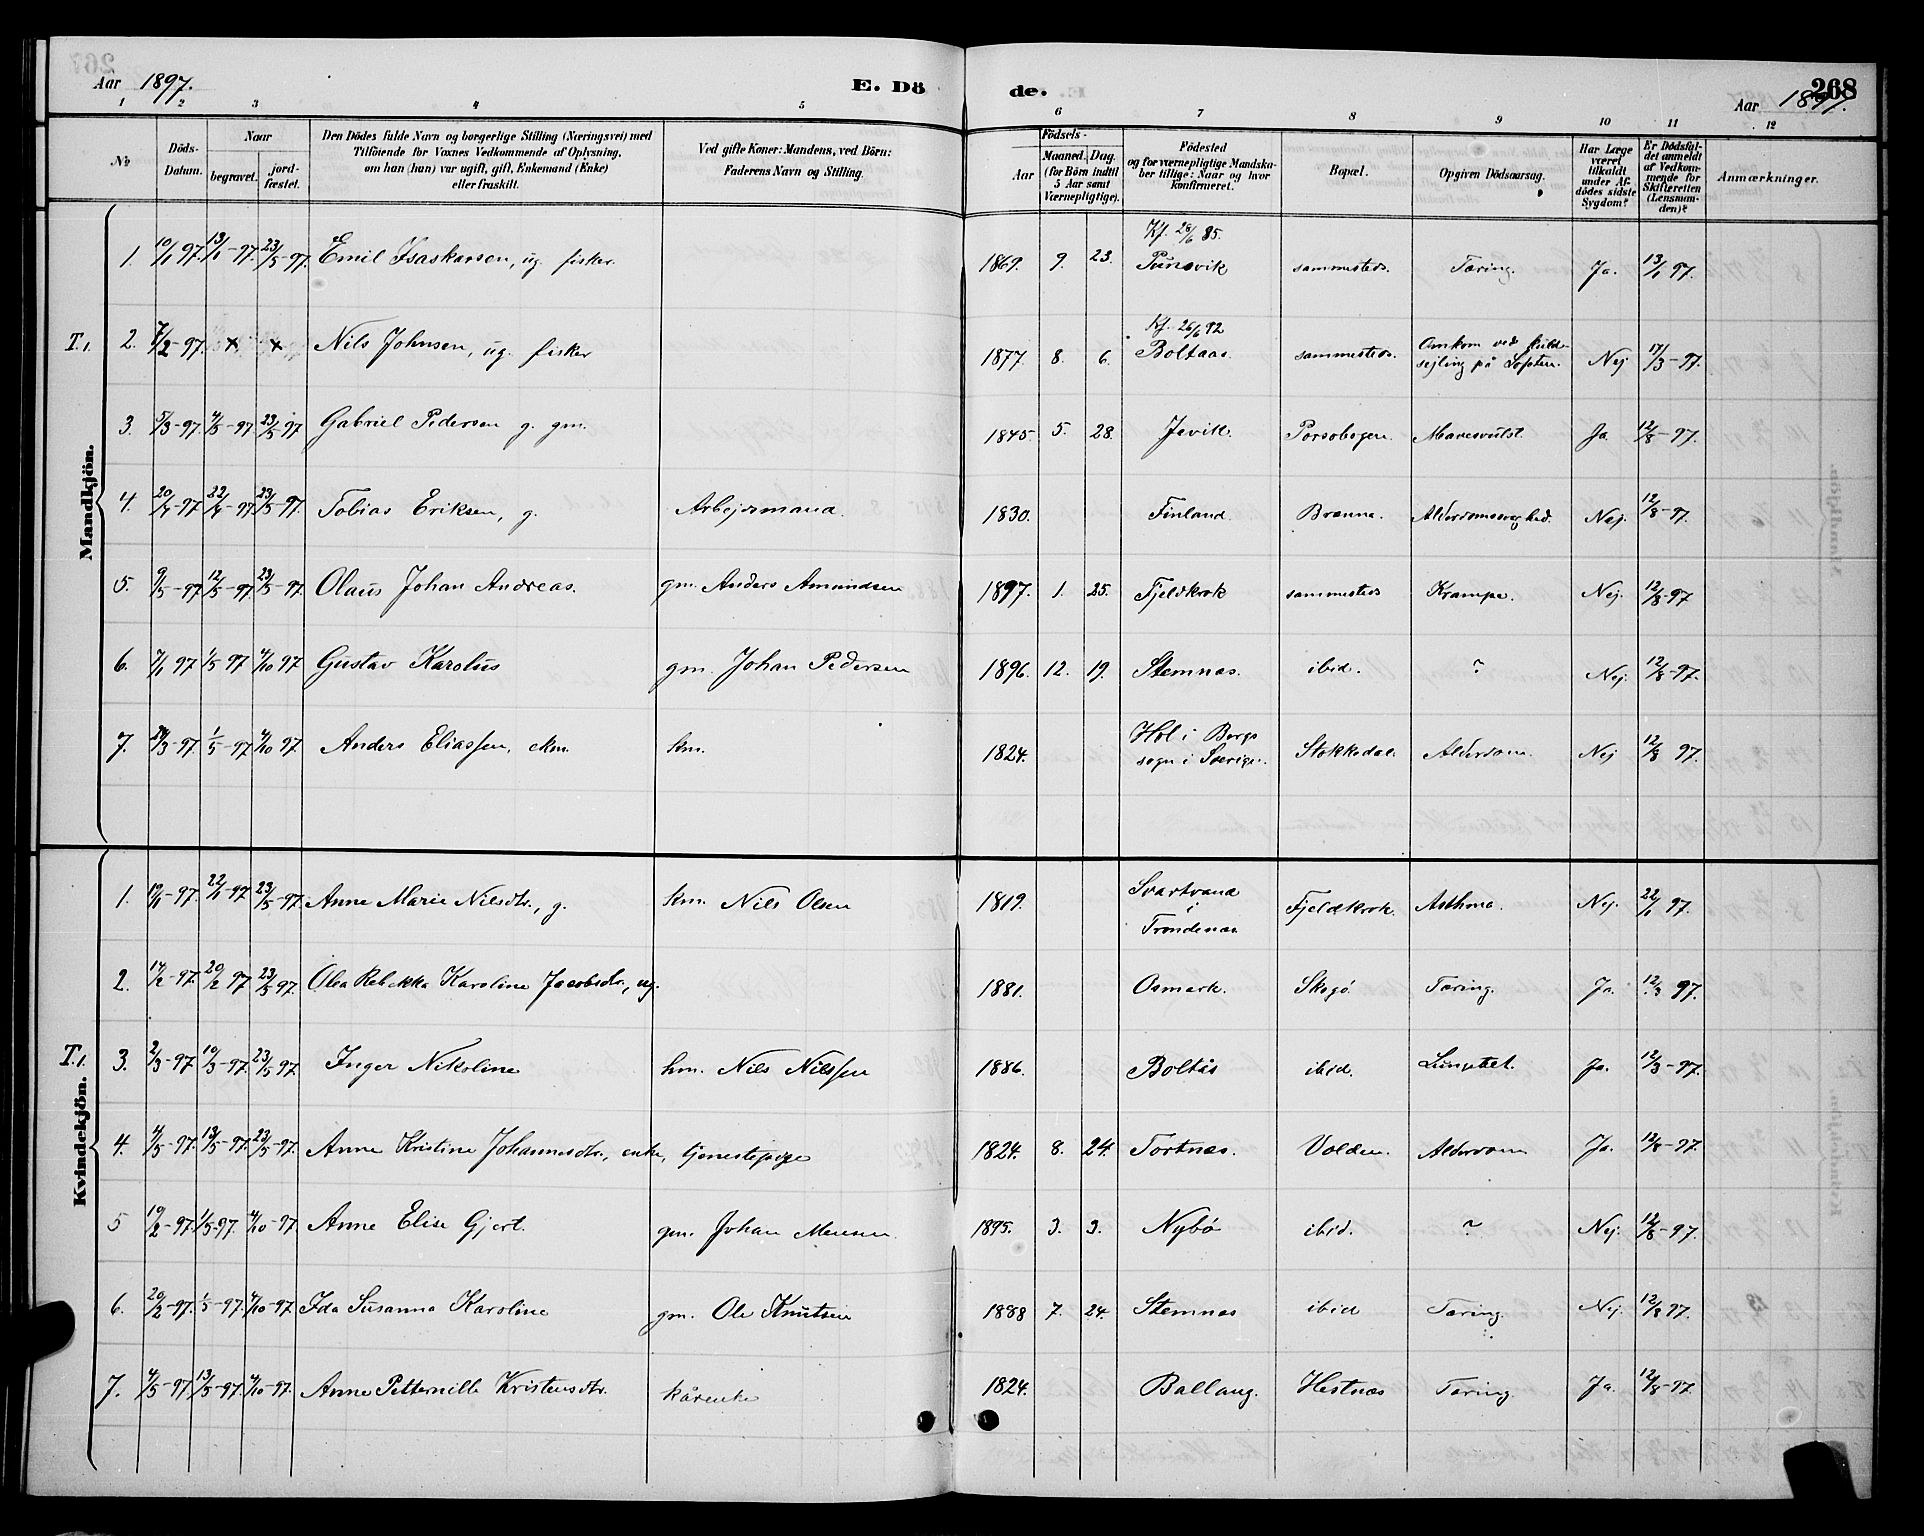 Aar 1897. E. Dö de. 268
Aar 1897.
1 2 3 4 5 6 7 8 9 10 11 12
No Döds-Datum. Naar begravet. jord-fæstet.
Den Dödes fulde Navn og borgerlige Stilling (Næringsvei) med
Tilföiende for Voxnes Vedkommende af Oplysning,
om han (hun) var ugift, gift, Enkemand (Enke)
eller fraskilt.
Ved gifte Koner: Mandens, ved Börn:
Faderens Navn og Stilling.
Födsels-
Aar Maaned. Dag.
(for Börn indtil
5 Aar samt
Værnepligtige).
Födested
og for værnepligtige Mandska-
ber tillige: Naar og hvor
konfirmeret.
Bopæl.
Opgiven Dödsaarsag.
Har Læge
været
tilkaldt
under Af-
dödes sidste
Sygdom?
Er Dödsfal-
det anmeldt
af Vedkom-
mende for
Skifteretten
(Lensman-
den)?
Anmærkninger.
Mandkjön.
Kf. 26/6 85.
1. 10/1 97. 13/1-97. 23/5-97. Emil Isaskarsen, ug. fisker. 1869. 9. 23. sammesteds. Tæring. Ja. 13/1 97.
Kf. 26/6 92
T. 2. 7/2-97. × × Nils Johnsen, ug. fisker 1877 8. 6. Boltaas. sammesteds. Omkom ved kuld-
sejling på Lofoten. Nej 17/3-97.
3. 5/3-97. 4/5-97. 23/5-97 Gabriel Pedersen g. gm. 1845 5. 28. Jævik. Mavesvulst. Ja. 12/8-97.
4. 20/4-97 22/4-97 23/5-97. Tobias Eriksen, g. Arbejdsmand. 1830. Finland. Brænna. Alderdomssvaghed. Nej. 12/8-97.
5. 9/5-97 12/5-97. 23/5-97. Olaus Johan Andreas. gm. Anders Amundsen 1897. 1. 25. Fjeldkrok sammesteds Krampe. Nej. 12/8-97
6. 7/1 97 1/5 97 4/10 97 Gustav Karolus gm. Johan Pedersen 1896. 12. 19. Stemnæs. ibid. ? Nej. 12/8-97.
7. 3-97. 1/5-97 4/10 97. Anders Eliassen, ekm. km. 1824. Hol i Borgs
sogn i Sverige. Stokkedal. Alderdom. Nej 12/8 97.
Kvindekjön.
1. 19/1-97. 22/1-97 23/5-97. Anne Marie Nilsdtr., g. km. Nils Olsen 1819. Svartvand
i
Trondenæs Fjeldkrok. Asthma. Nej. 22/1 97.
2. 14/2-97. 20/2 97 23/5 97. Olea Rebekka Karoline Jacobsdtr., ug. 1881. Osmark. Skogö. Tæring. Ja. 12/3 97.
T. 3. 2/3-97 10/3-97. 23/5 97. Inger Nikoline hm. Nils Nilssen 1886. Boltås ibid. Lungebet. Ja. 12/3-97.
4. 4/5-97. 13/5-97. 23/5-97. Anne Kristine Johannesdtr., enke, tjenestepige 1824. 8. 24. Tortnæs. Volden. Alderdom Ja. 12/8-97.
5 19/2-97. 1/5-97. 4/10-97. Anne Elise Gjert. gm. Johan Monsen 1895. 3. 3. Nybö ibid. ? Nej. 12/8-97.
6. 20/2-97. 1/5-97. 4/10-97. Ida Susanna Karoline gm. Ole Knutsen 1888 7. 24. Stemnæs ibid Tæring. Nej. 12/8 97.
7. 4/5-97 13/5-97. 4/10-97. Anne Petternille Kristensdtr. kårenke 1824. Ballang. Hestnæs Tæring. Ja. 12/8-97